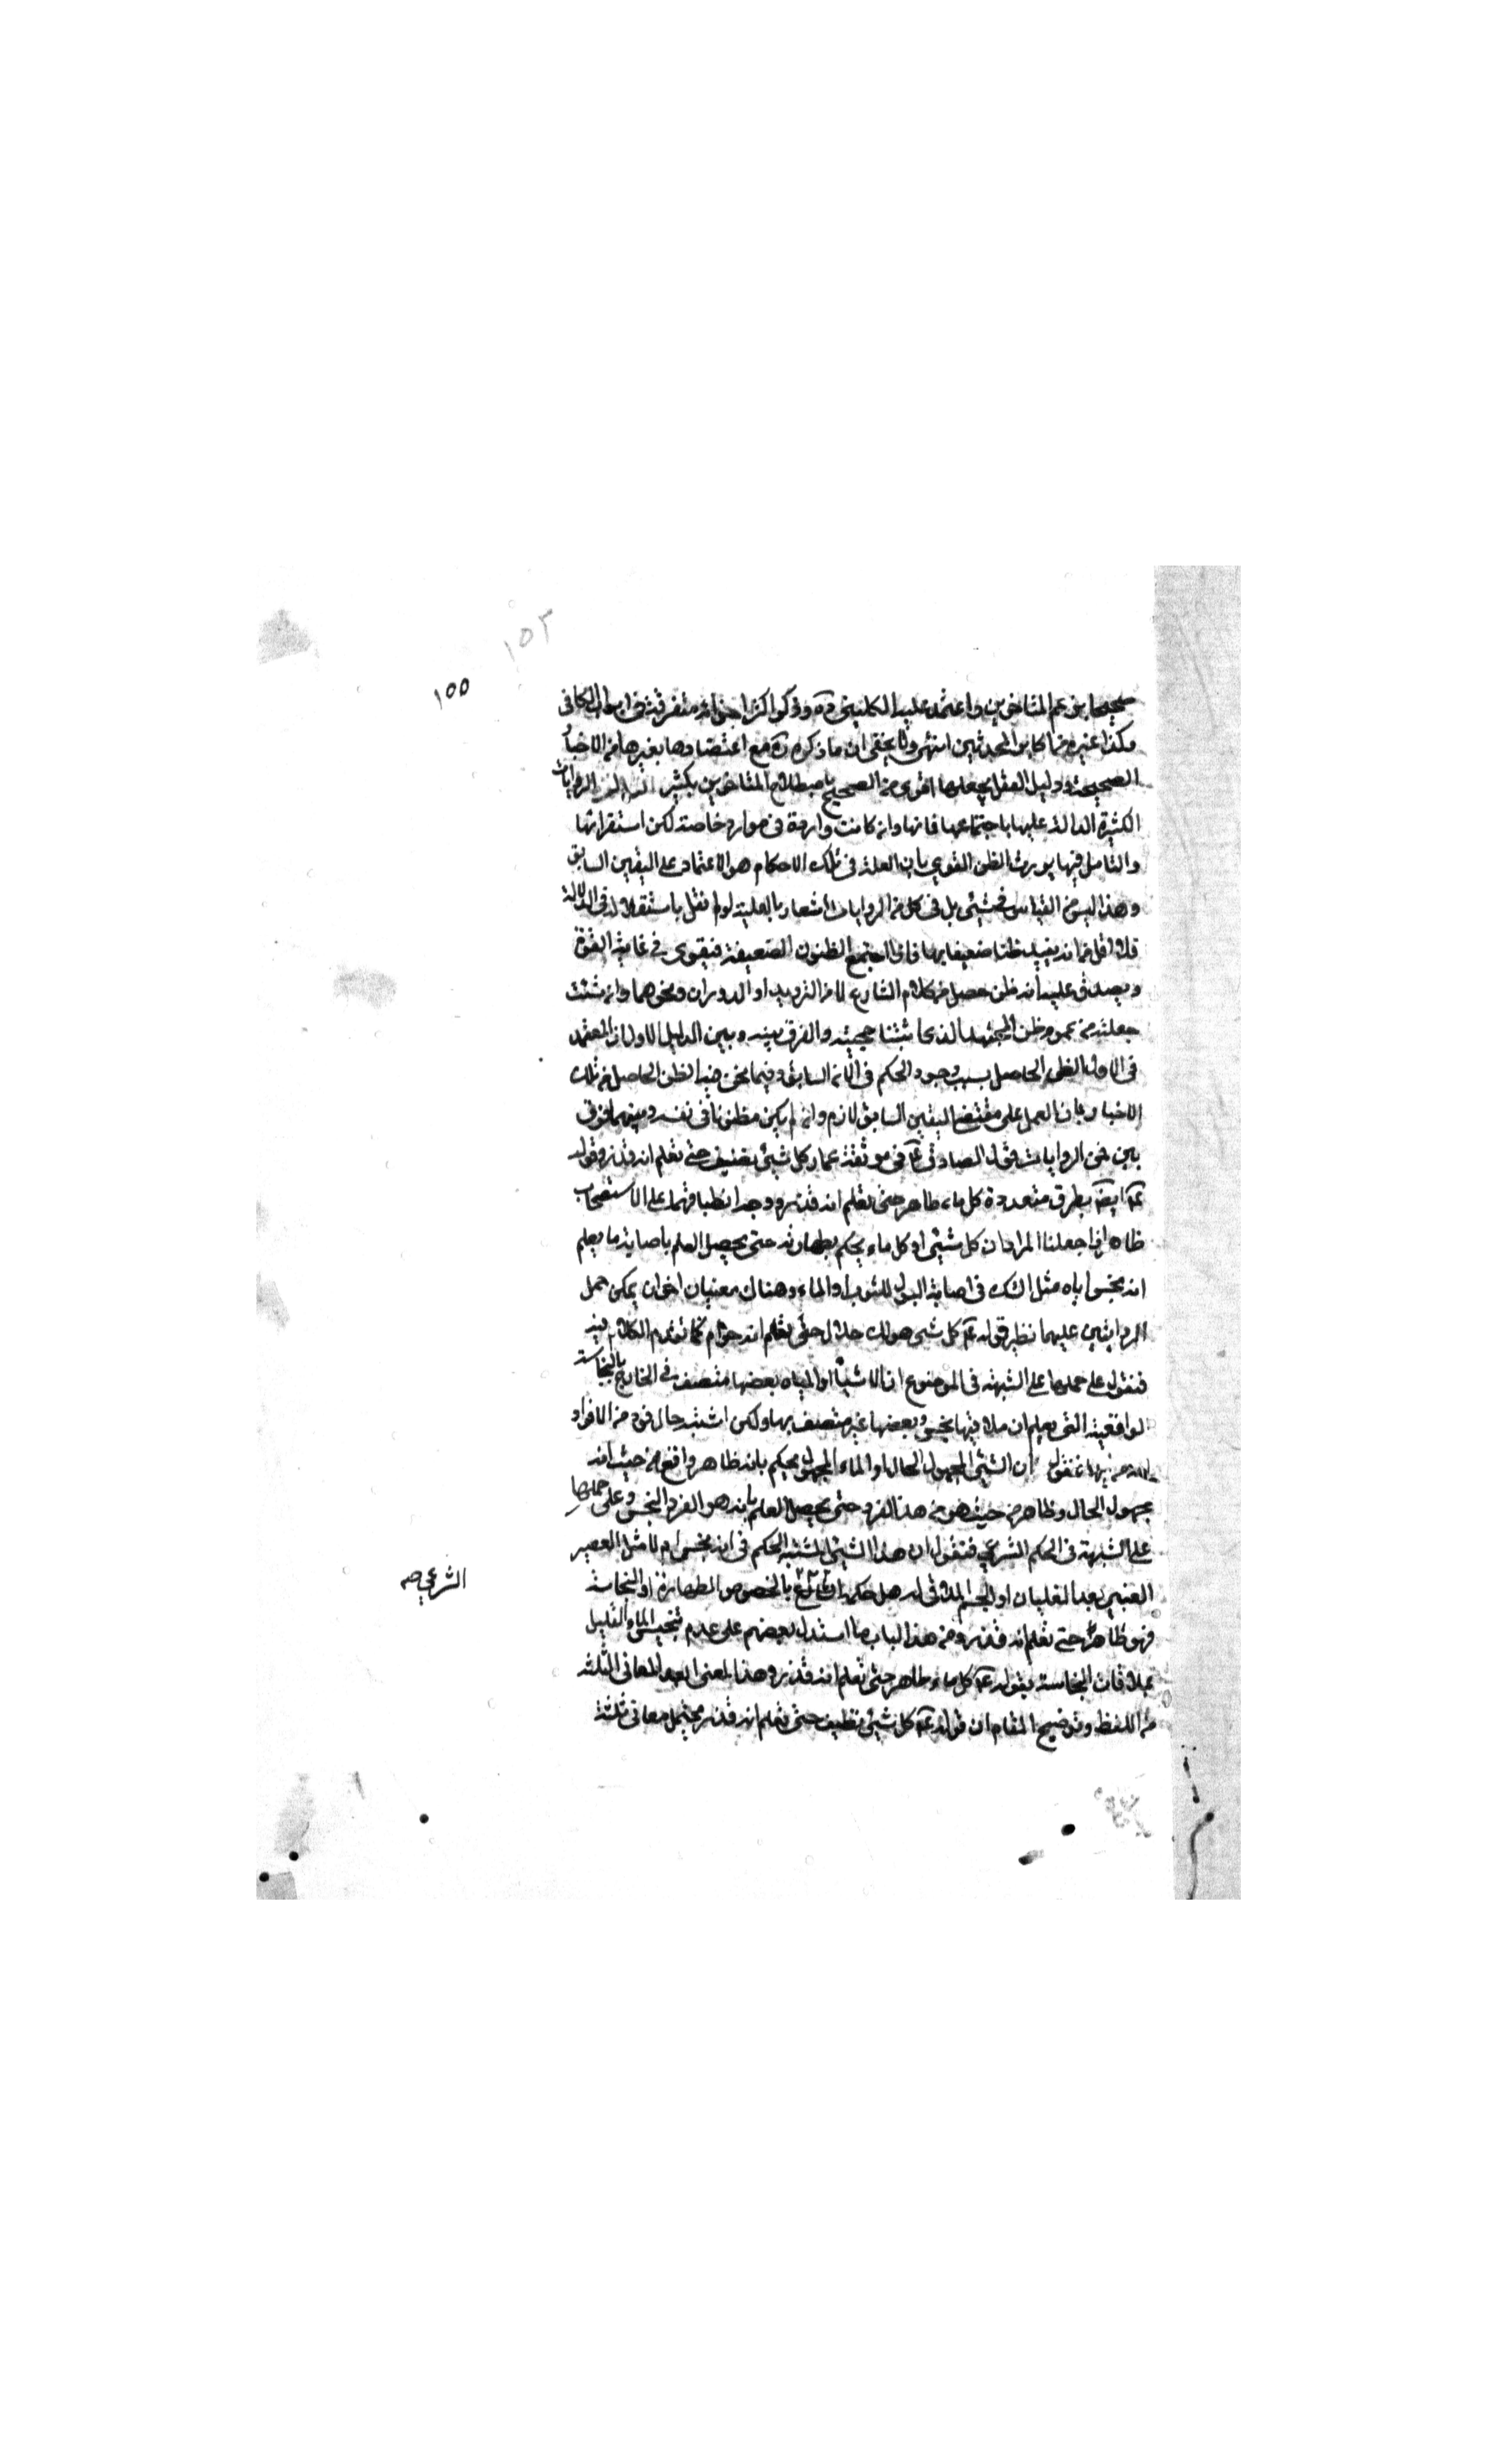 ١٥٢
١٥٥
صحيحا بزعم المتاخرين واعتمد عليه الكلينى ره وذكر اكثر اجزائه متفرقة فى ابواب الكافى
وكذا غيره من اكابر المحدثين انتهى ولا يخفى ان ما ذكره ره مع اعتضادها بغيرها من الاخبار
الصحيحة ودليل العقل يجعلها اقوى من الصحيح باصطلاح المتاخرين بكثير الروايات
الكثيرة الدالة عليها باجتماعها فانها وان كانت واردة فى موارد خاصة لكن استقرائها
والتامل فيها يورث الظن القوى بان العلة فى تلك الاحكام هو الاعتماد على اليقين السابق
وهذا ليس من القياس فى شيئى بل فى كل من الروايات اشعار بالعلية لو لم نقل باستقلاله فى الدلالة
فلا اقل من انه يفيد ظنا ضعيفا بها فاذا اجتمع الظنون الضعيفة فيقوى فى غاية القوة
ويصدق عليه انه ظن حصل من كلام الشارع لا من الترديد او الدوران ونحوهما وان شئت
جعلته من عموم ظن المجتهد الذى اثبتنا حجيته والفرق بينه وبين الدليل الاول ان المعتمد
فى الاول الظن الحاصل بسبب وجود الحكم فى الان السابق وفيما نحن فيه الظن الحاصل من تلك
الاخبار بان العمل على مقتضى اليقين السابق لازم وان لم يكن مظنونا فى نفسه وبينهما فرق
بين فمن الروايات قول الصادق ع فى موثقة عمار كل شيئى نظيف حتى تعلم انه قذر وقوله
ع ايضا بطرق متعددة كل ماء طاهر حتى تعلم انه قذر ووجه انطباقهما على الاستصحاب
ظاهر اذا جعلنا المراد ان كل شيئى او كل ماء يحكم بطهارته حتى يحصل العلم باصابة ما يعلم
انه نجس اياه مثل الشك فى اصابة البول للثوب او الماء وهناك معنيان اخران يمكن حمل
الروايتين عليهما نظير قوله ع كل شيئى هو لك حلال حتى تعلم انه حرام كما تقدم الكلام فيه
فنقول على حملها على الشبهة فى الموضوع ان الاشياء او المياه بعضها متصف فى الخارج بالنجاسة
الواقعية التى يعلم ان ملاقيها نجس وبعضها غير متصف بها ولكن اشتبه حال فرد من الافراد
فنقول ان الشيئى المجهول الحال او الماء المجهول محكم بانه طاهر واقع من حيث انه
مجهول الحال وظاهر من حيث هو من هذا الفرد حتى يحصل العلم بانه هو الفرد النجس وعلى حملها
على الشبهة فى الحكم الشرعى فنقول ان هذا الشيئى المشتبه الحكم فى انه نجس ام لا مثل العصير
العنبى بعد الغليان او الجسم الملاقى له هل حكمه بالخصوص الطهارة او النجاسة
الشرعى صح
فهو طاهر حتى تعلم انه قذر ومن هذا الباب ما استدل بعضهم على عدم تنجيس الماء القليل
بملاقات النجاسة بقوله ع كل ماء طاهر حتى تعلم انه قذر وهذا المعنى ابعد المعانى الثلثة
من اللفظ وتوضيح المقام ان قوله ع كل شيئى نظيف حتى تعلم انه قذر يحتمل معانى ثلثة